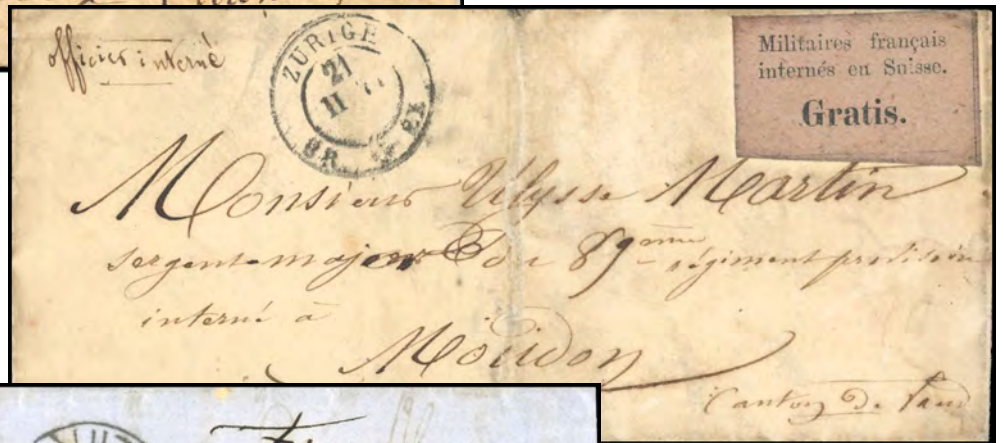 officier interné
ZURICH
21
II
Militaires français
internés en Suisse.
Gratis.
Monsieur Ulysse Martin
sergent-major 89ème régiment
interné à
Moudon
Canton de Vaud